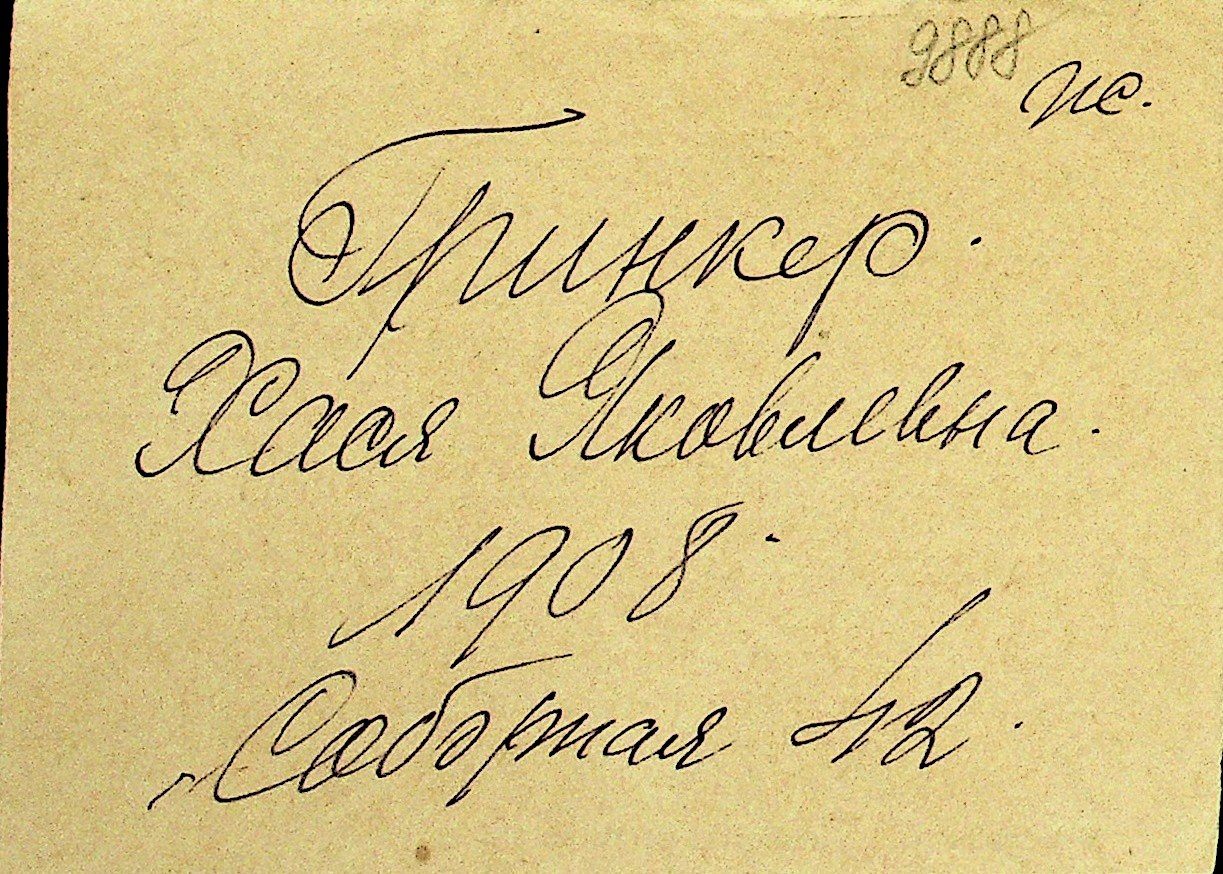 9888
ис.
Гринкер.
Хася Яковлевна.
1908.
Соборная 42.